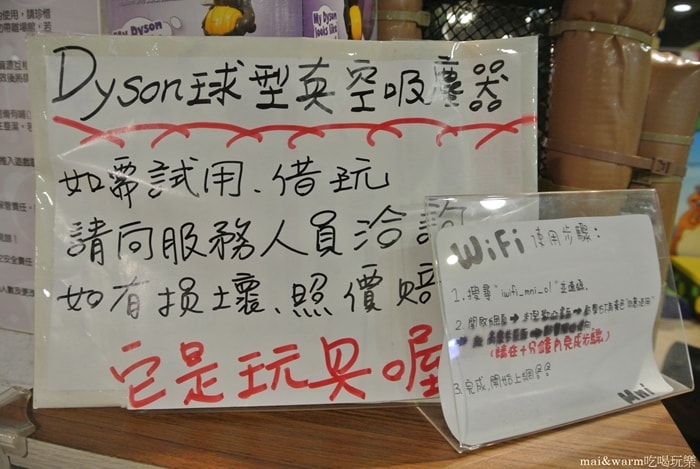 My Dyson
My Dyson
looks like
Dyson球型真空吸塵器
如需試用、借玩
請向服務人員洽詢
如有損壞、照價賠
它是玩具喔
WiFi 使用步驟：
1. 搜尋"iwifi_mni_01"並連線。
2. 開啟網頁→
(請在十分鐘內完成步驟)
3. 完成,開始上網
Mni
mai&warm吃喝玩樂